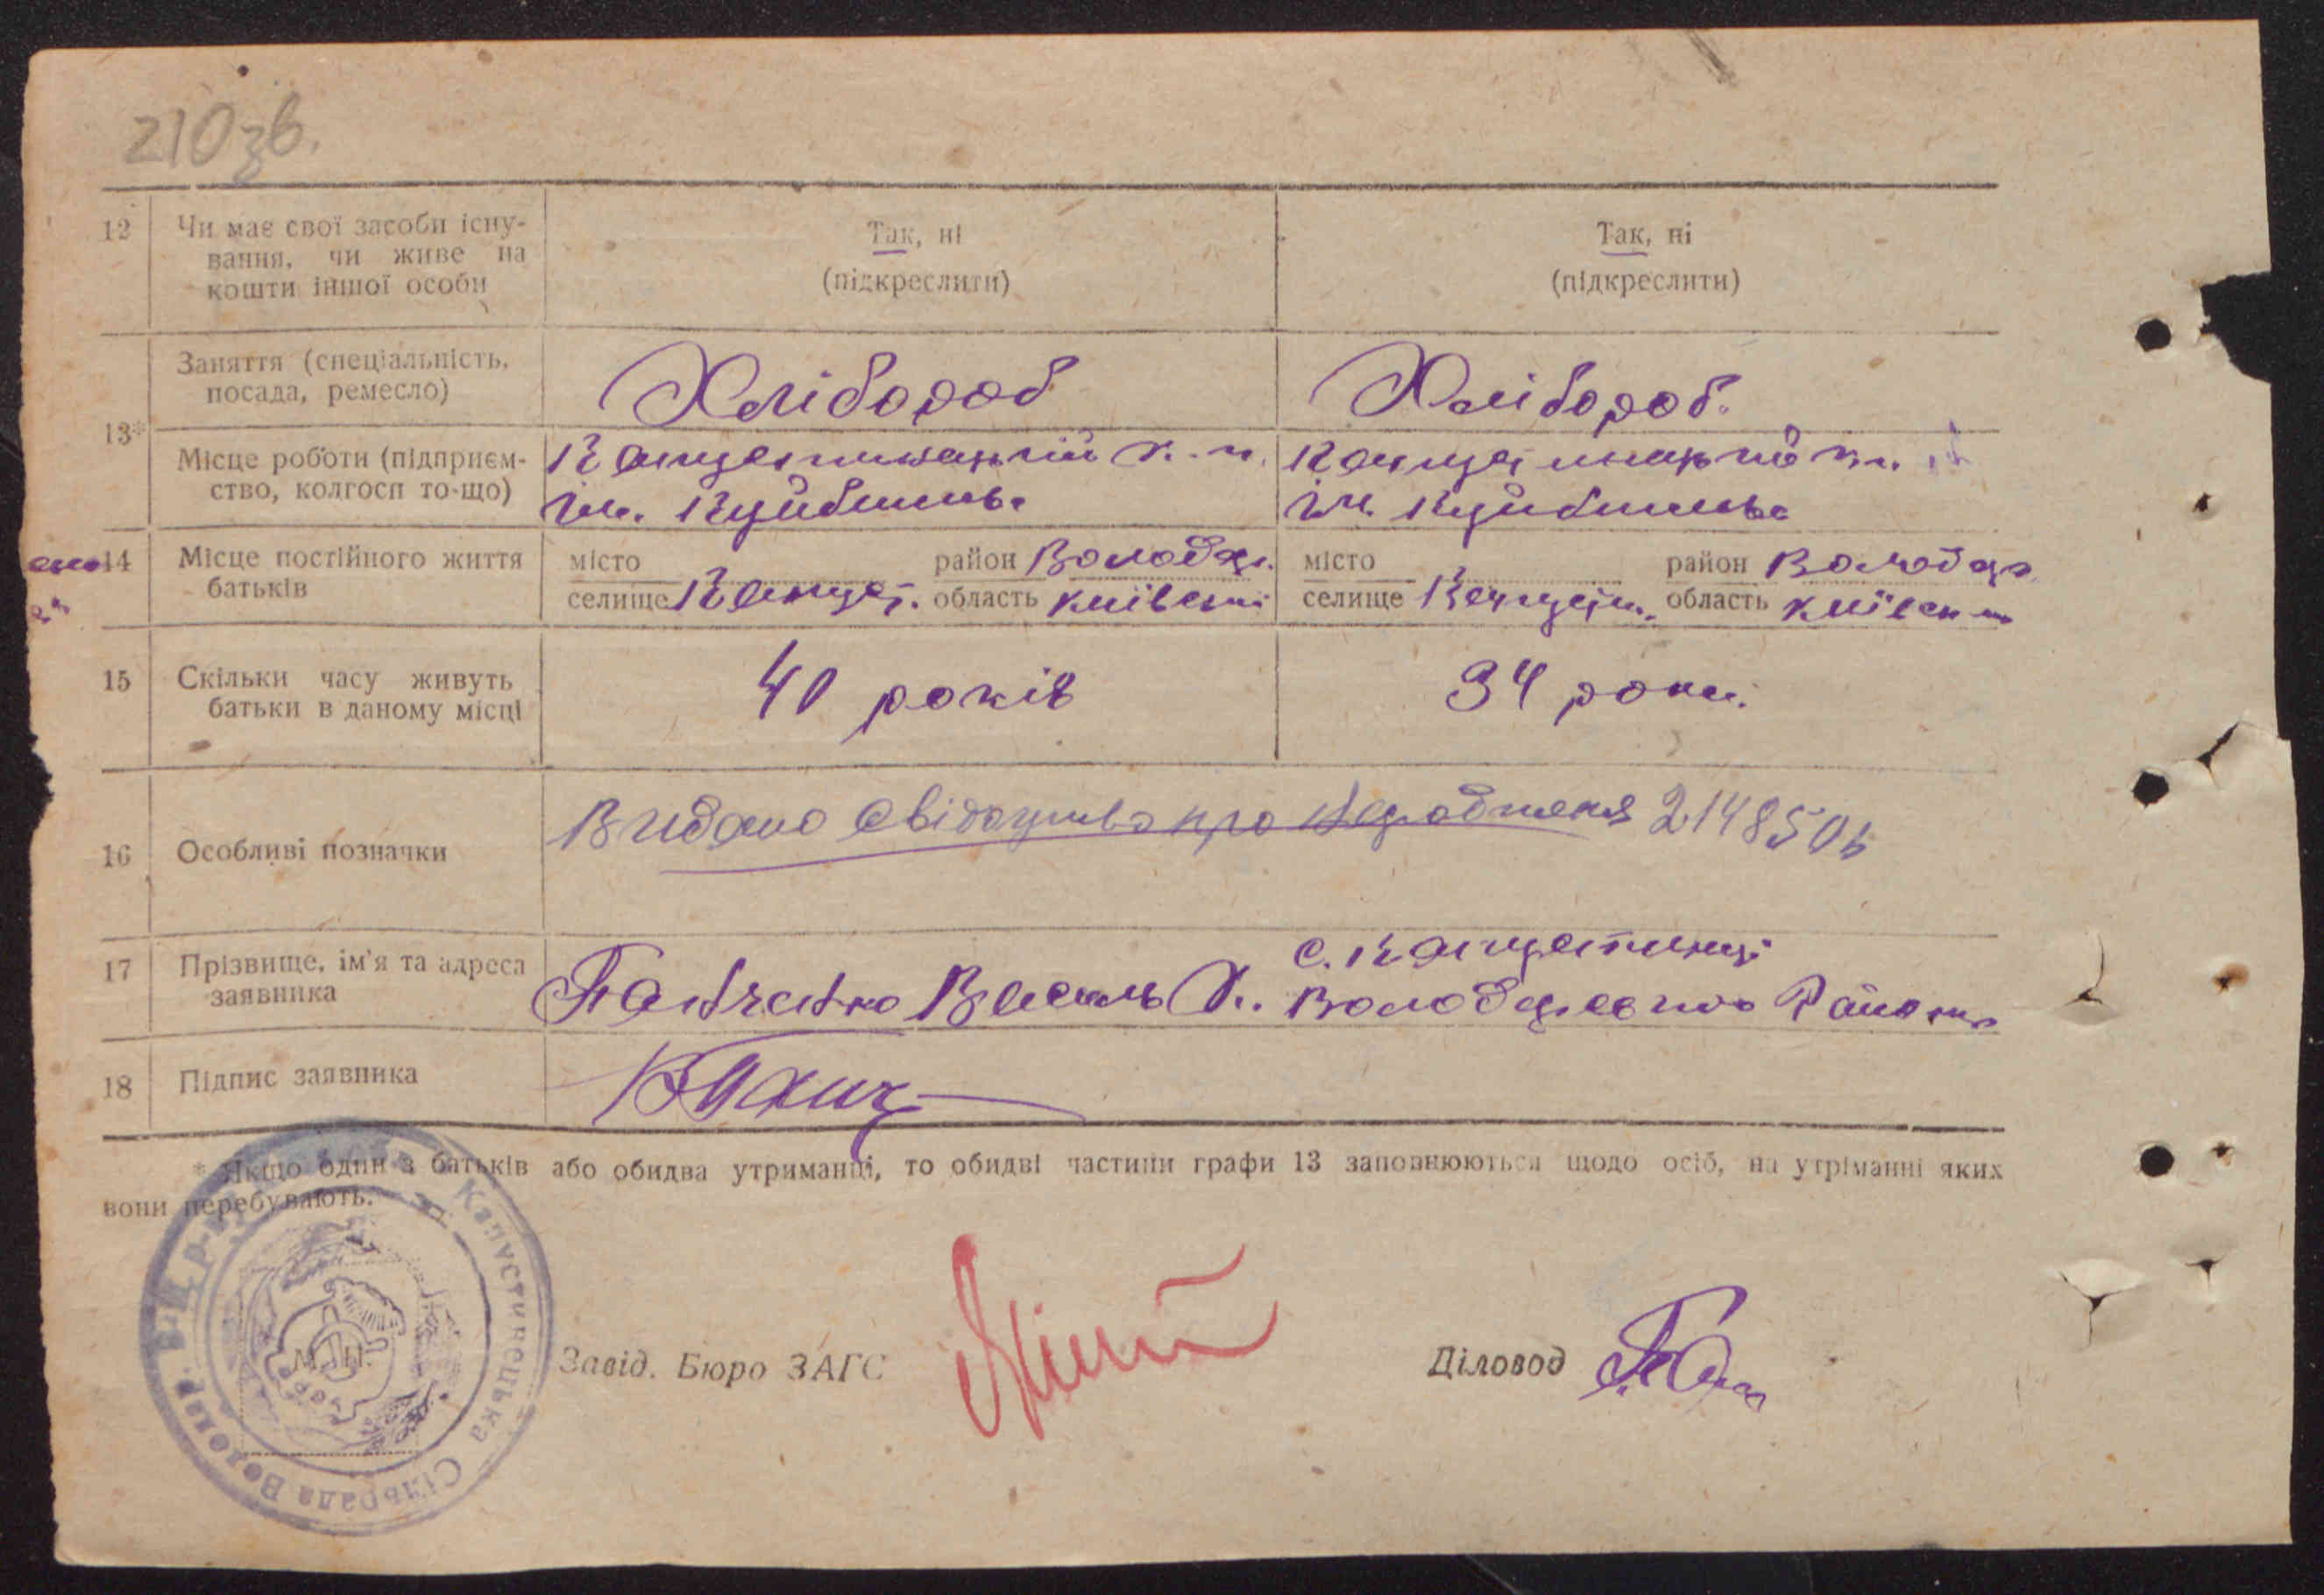 210зв.
12 Чи має свої засоби існу-
вання, чи живе на
кошти іншої особи
Так, ні
(підкреслити)
Так, ні
(підкреслити)
13*
Заняття (спеціальність,
посада, ремесло)
Хлібороб
Хлібороб.
Місце роботи (підприєм-
ство, колгосп то-що)
ім. Куйбишева
ім. Куйбишева
14 Місце постійного життя
батьків
місто
селище Капуст. район Володар.
область Київськ
місто
селище Капуст. район Володар
область Київськ
15 Скільки часу живуть
батьки в даному місці
40 років
34 роки.
16 Особливі позначки
Видано свідоцтво про народження 2148506
17 Прізвище, ім'я та адреса
заявника
Василь Х. с. Капустинці
Володарського Району
18 Підпис заявника
* Якщо один з батьків або обидва утриманці, то обидві частини графи 13 заповнюються щодо осіб, на утріманні яких
вони перебувають.
Капустинецька Сільрада Володар. р-н
М. П.
Завід. Бюро ЗАГС
Діловод